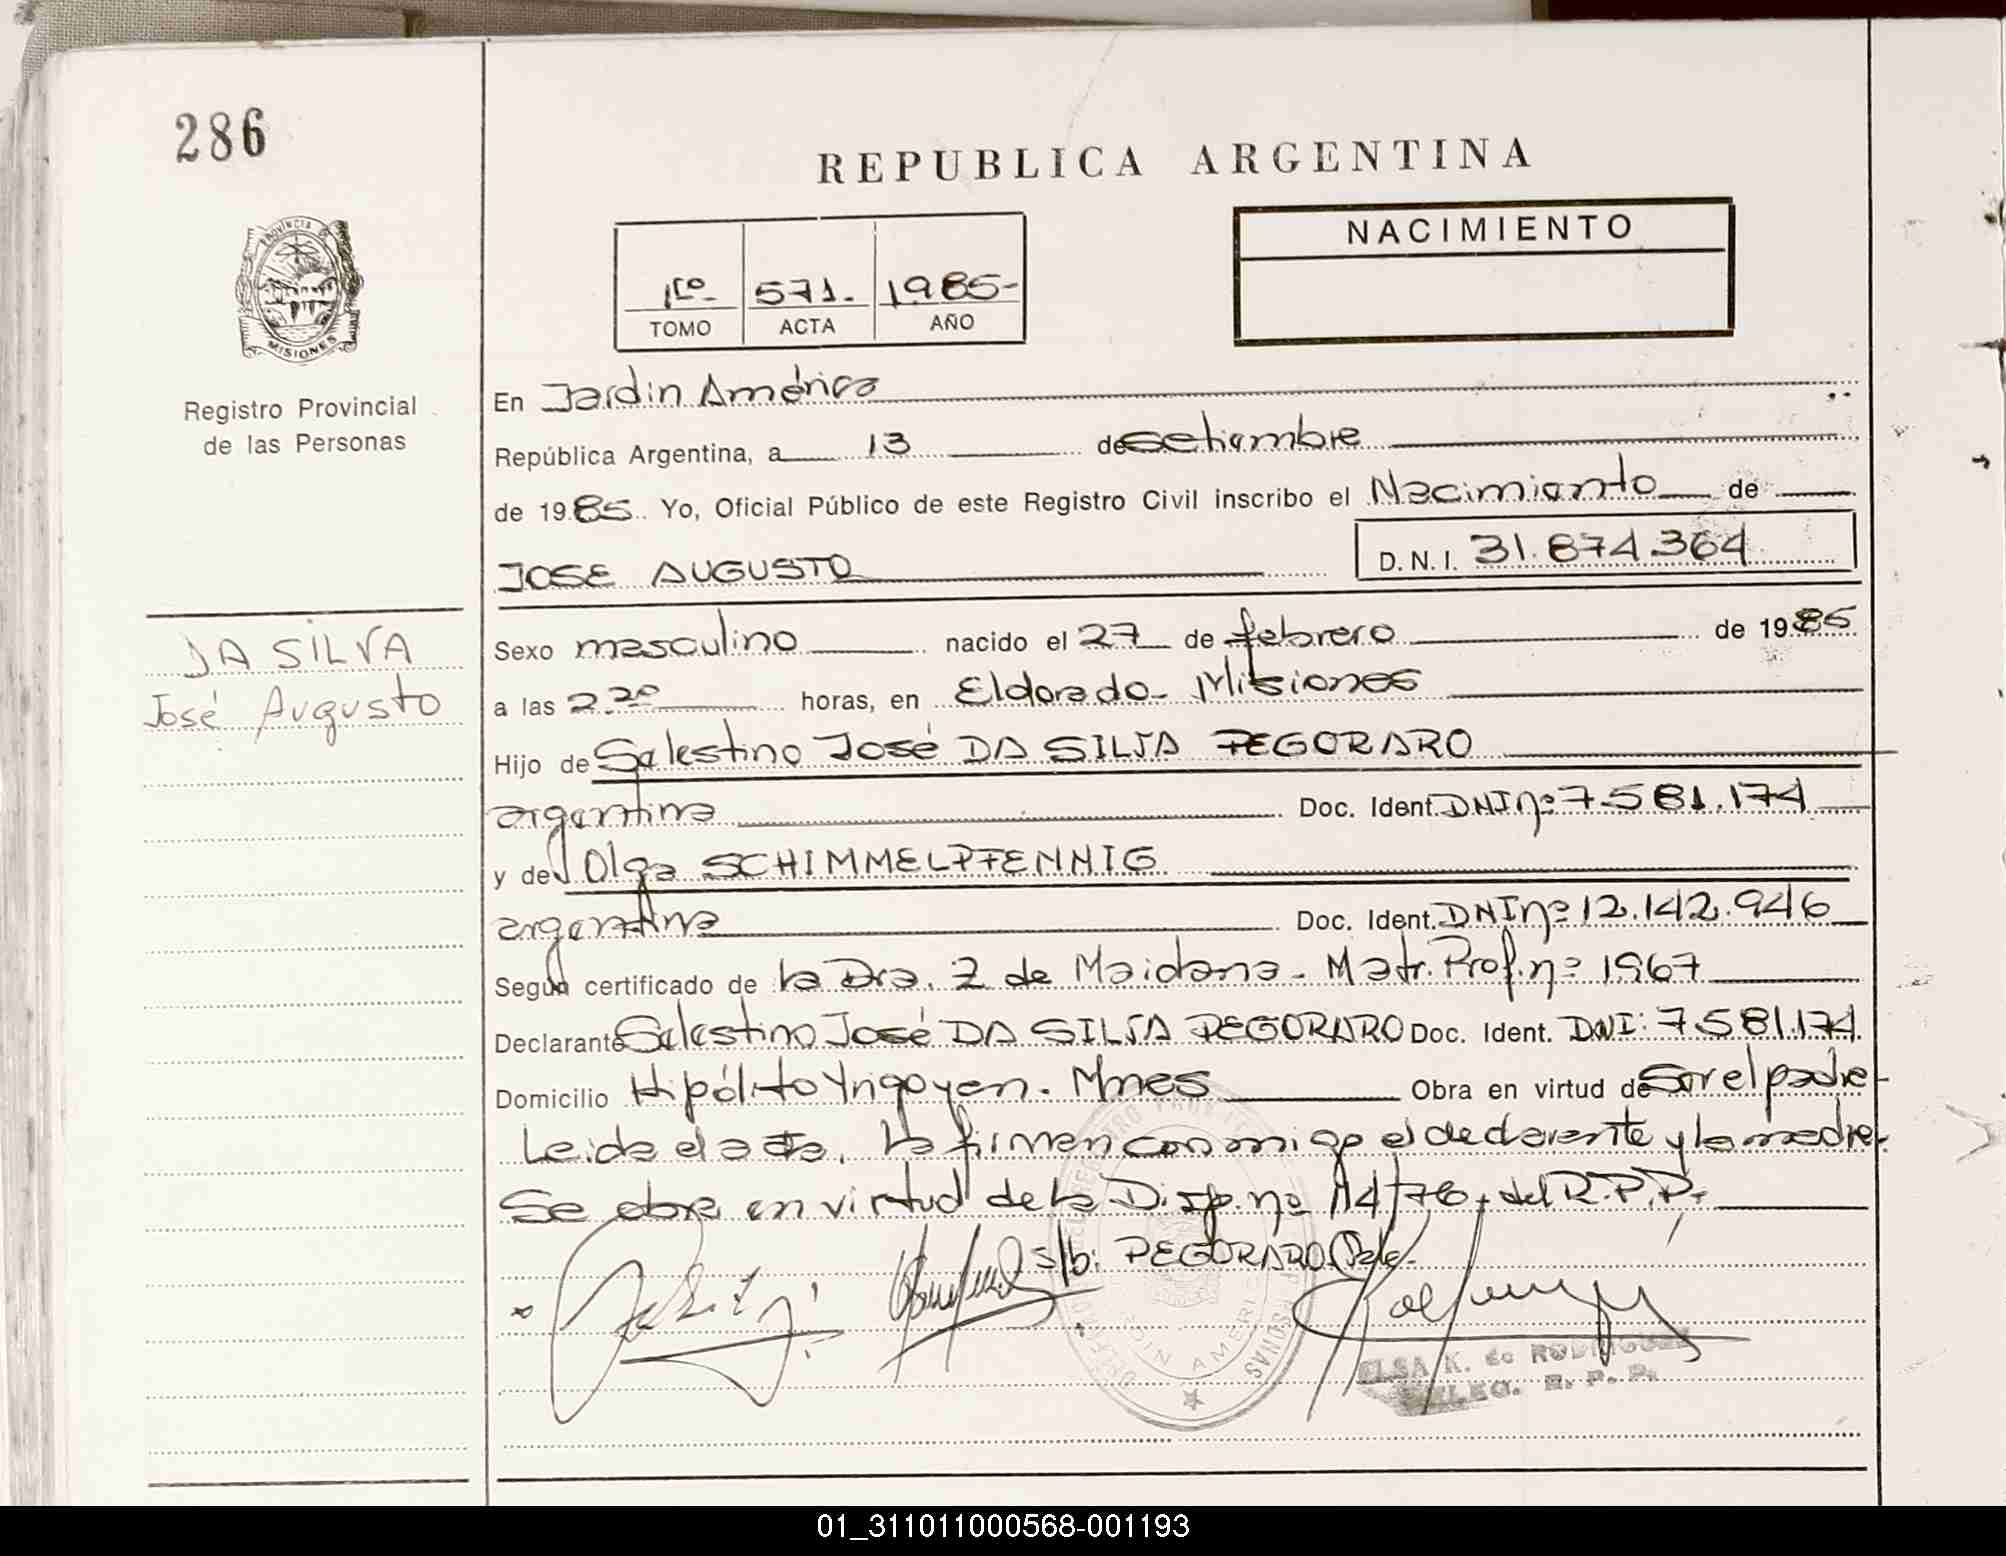 286
REPUBLICA ARGENTINA
PROVINCIA DE
MISIONES
Registro Provincial
de las Personas
1ro- 571.- 1985-
TOMO ACTA AÑO
NACIMIENTO
En Jardin América
República Argentina, a 13 de setiembre
de 1985. Yo, Oficial Público de este Registro Civil inscribo el Nacimiento de
JOSE AUGUSTO D.N.I. 31.874.364
DA SILVA
José Augusto
Sexo masculino nacido el 27 de febrero de 1985
a las 2.20 horas, en Eldorado- Misiones
Hijo de Salestino José DA SILVA PEGORARO
argentina Doc. Ident. DNI nº 7.581.174
y de Olga SCHIMMELPFENNIG
argentina Doc. Ident. DNI nº 12.142.946
Según certificado de la Dra. Z de Maidana- Matr. Prof. nº 1967
Declarante Salestino José DA SILVA PEGORARO Doc. Ident. DNI: 7.581.174.
Domicilio Hipólito Yrigoyen. Mnes Obra en virtud de Ser el padre-
Leida el acta, la firman conmigo el declarante y la madre-
Se obra en virtud de la Disp. nº 114/76, del R.P.P.-
s/b: PEGORARO Vale-
ELSA K. de RODRIGUEZ
DELEG. R. P. P.
01_311011000568-001193